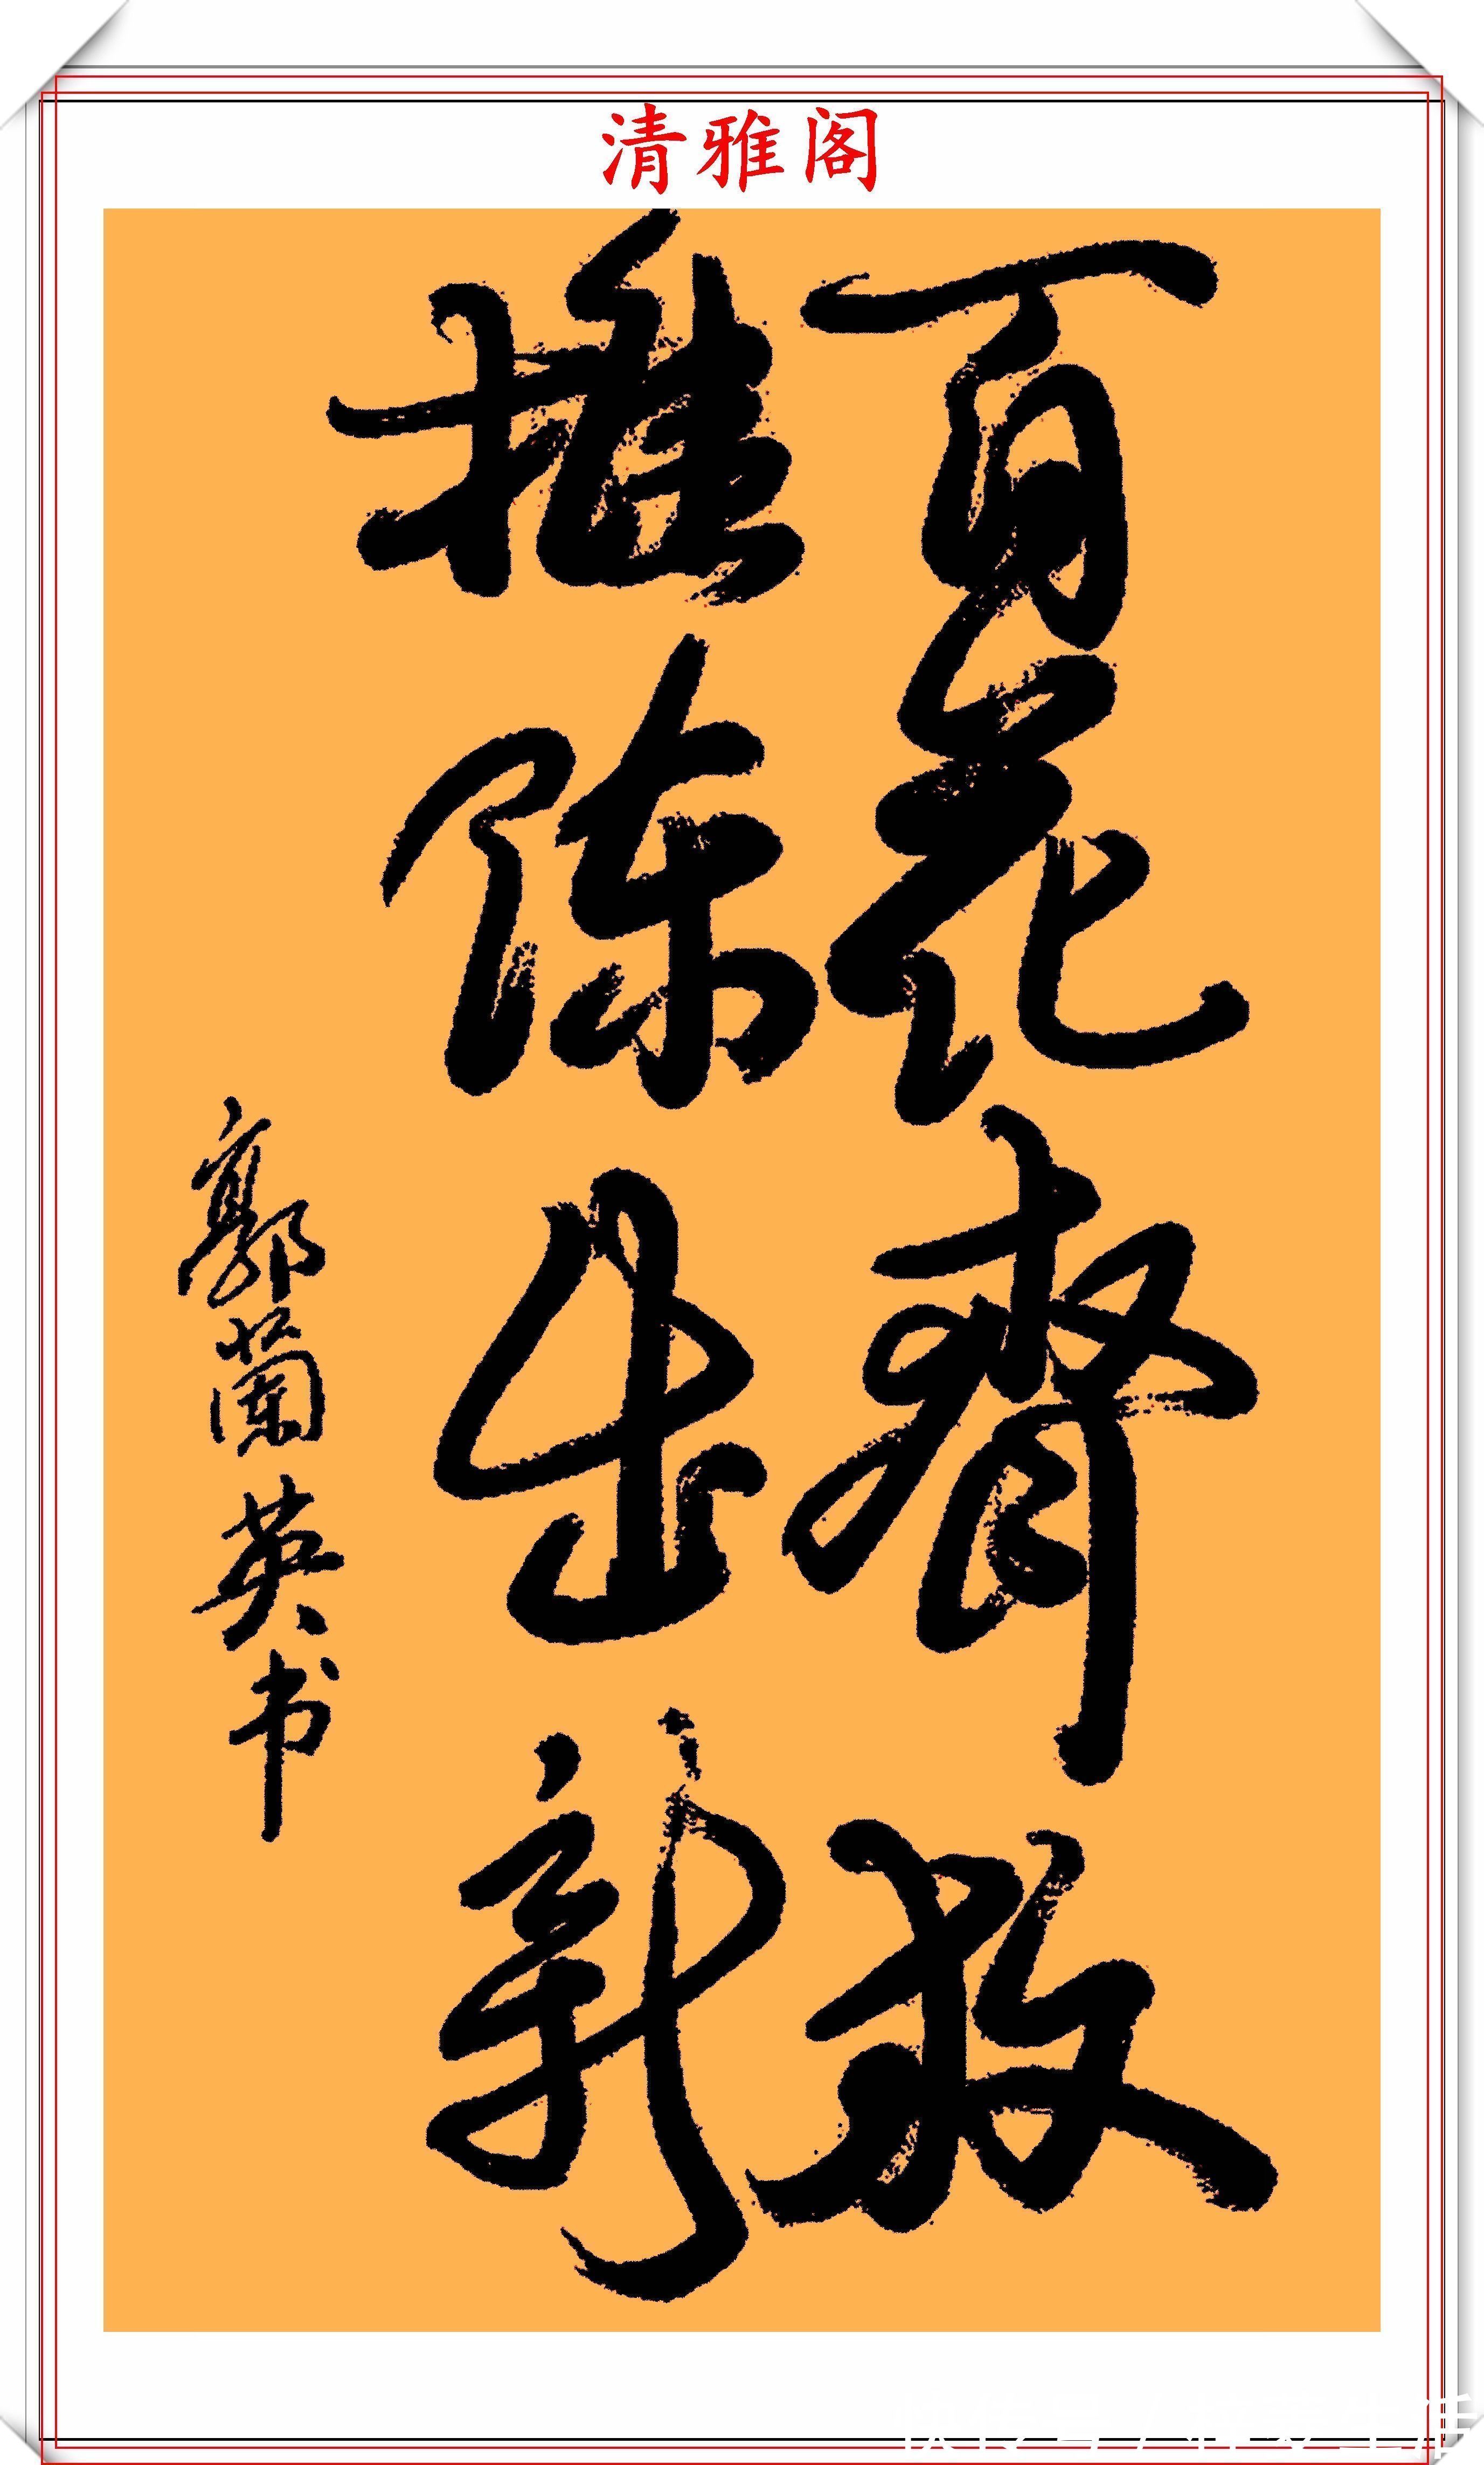 清雅阁
百花齐放
推陈出新
郭兰英书